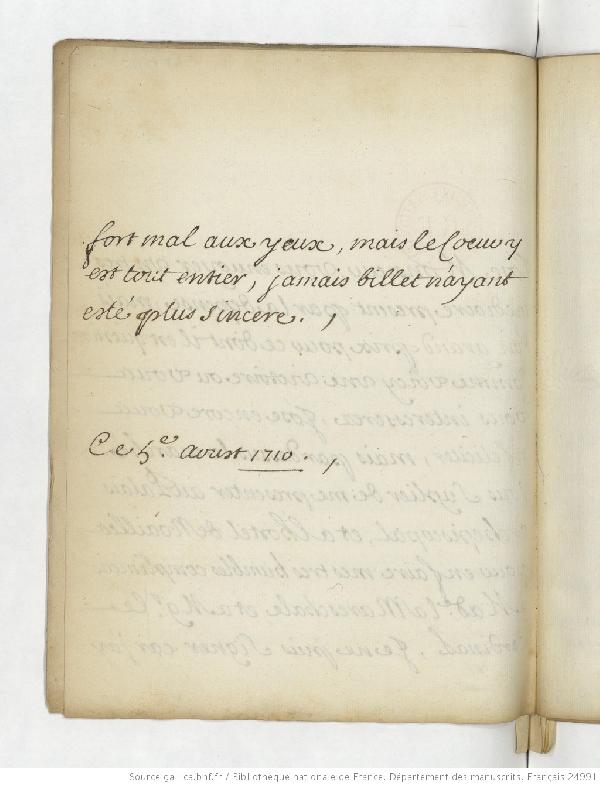 fort mal aux yeux, mais le Coeur y
est tout entier, jamais billet n'ayant
esté plus sincere.,
Ce 5e. aoust 1710.,
Source gallica.bnf.fr / Bibliothèque nationale de France. Département des manuscrits. Français 24991